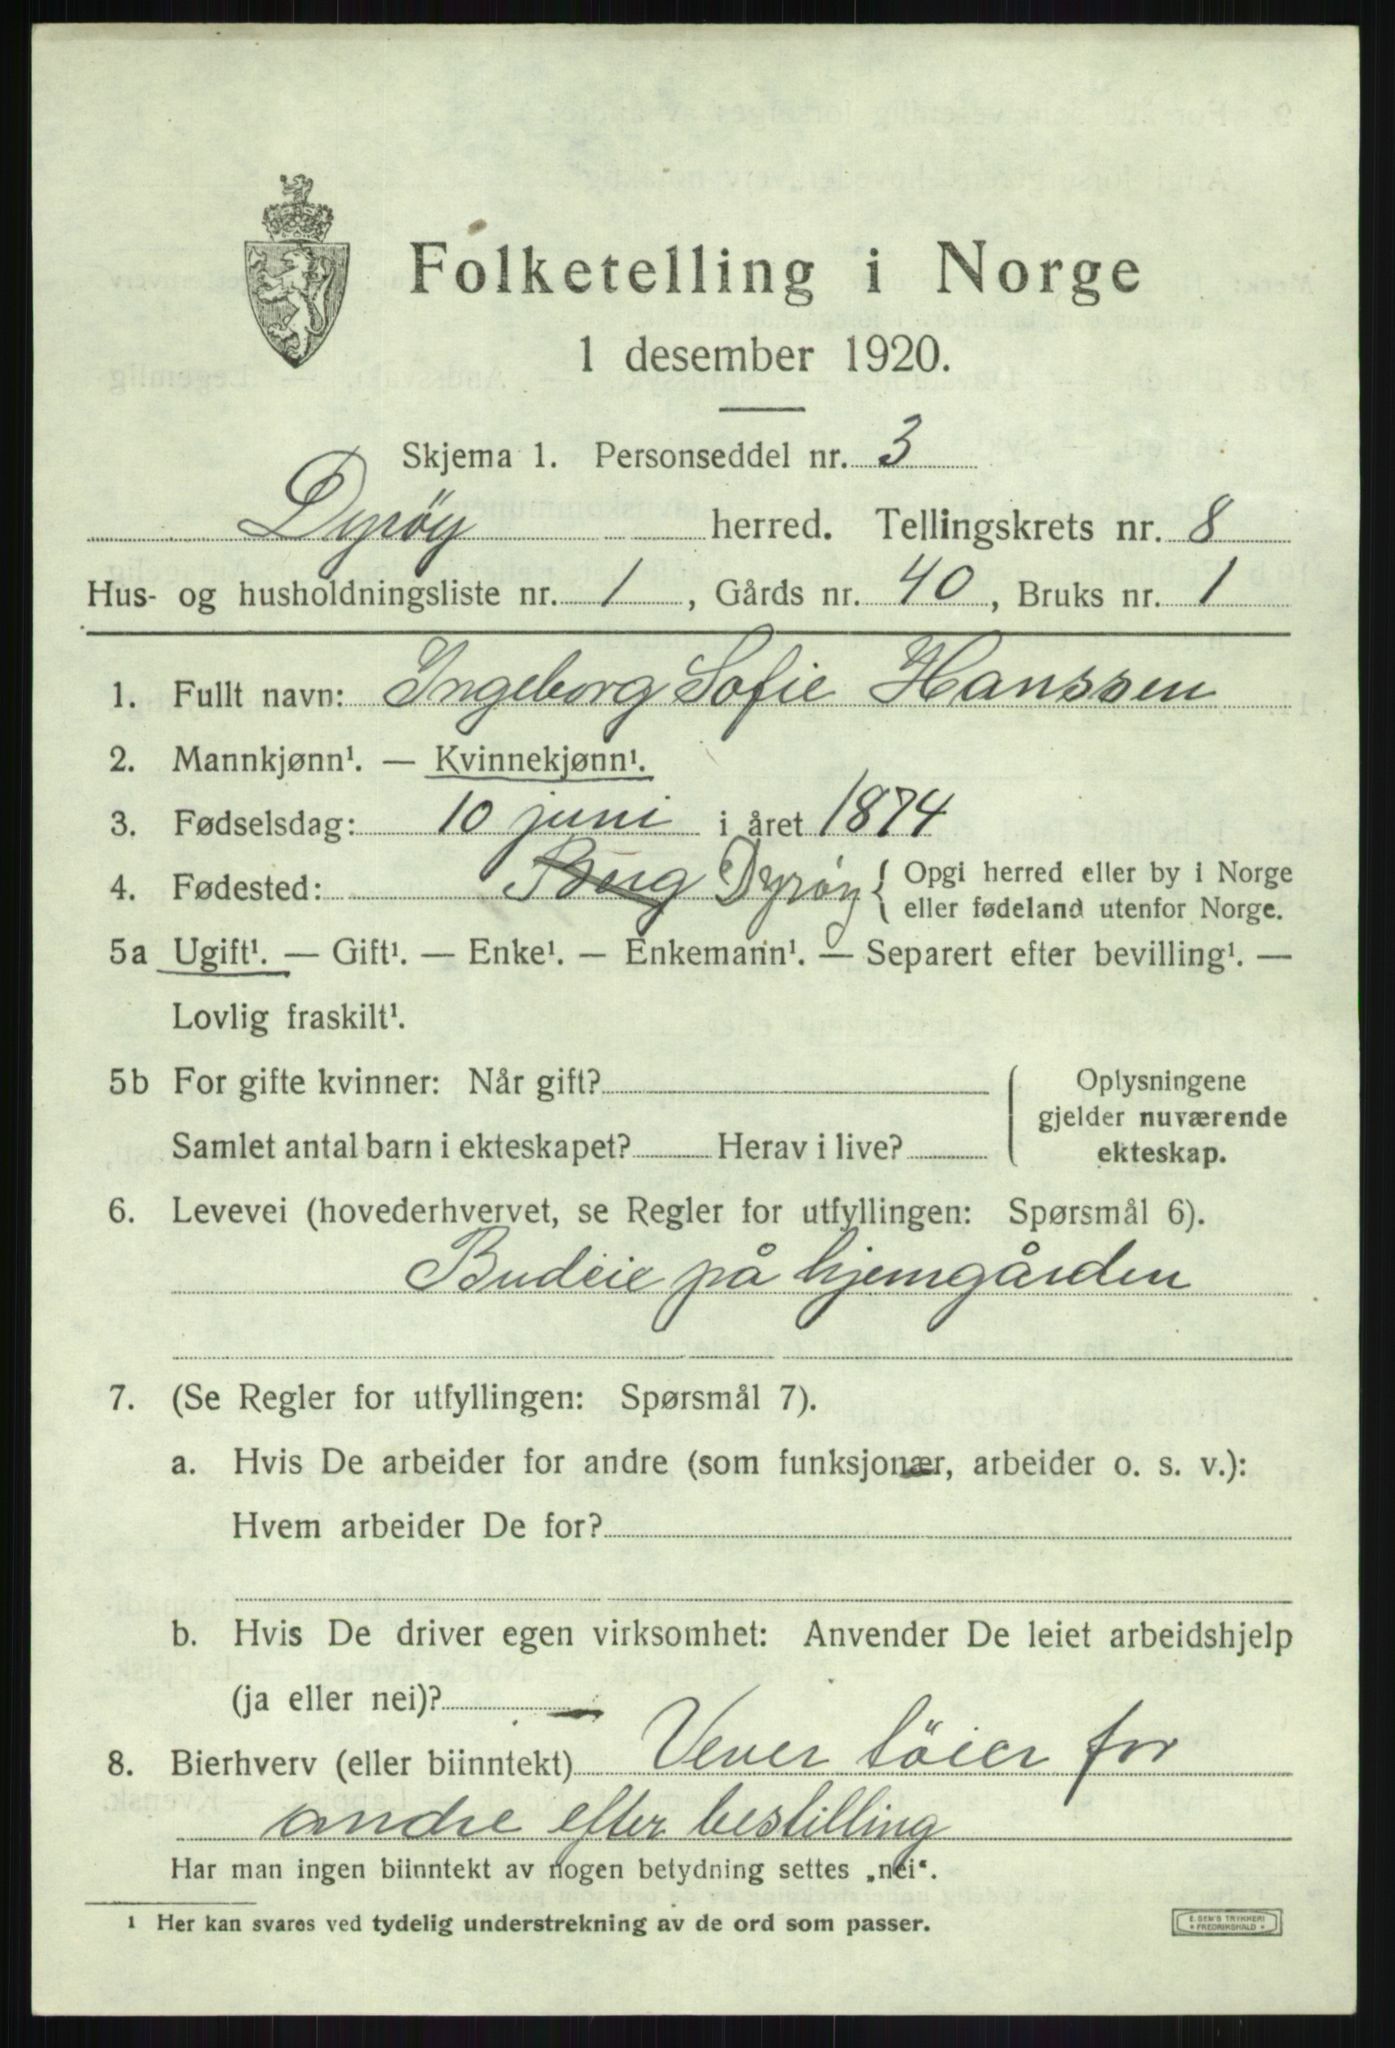 Folketelling i Norge
1 desember 1920.
Skjema 1. Personseddel nr. 3
Dyrøy herred. Tellingskrets nr. 8
Hus- og husholdningsliste nr. 1, Gårds nr. 40, Bruks nr. 1
1. Fullt navn: Ingeborg Sofie Hanssen
2. Mannkjønn¹. — Kvinnekjønn¹.
3. Fødselsdag: 10 juni i året 1874
4. Fødested: Dyrøy { Opgi herred eller by i Norge
eller fødeland utenfor Norge.
5a Ugift¹. — Gift¹. — Enke¹. — Enkemann¹. — Separert efter bevilling¹. —
Lovlig fraskilt¹.
5b For gifte kvinner: Når gift?
Samlet antal barn i ekteskapet? Herav i live?
Oplysningene
gjelder nuværende
ekteskap.
6. Levevei (hovederhvervet, se Regler for utfyllingen: Spørsmål 6).
Budeie på hjemgården
7. (Se Regler for utfyllingen: Spørsmål 7).
a. Hvis De arbeider for andre (som funksjonær, arbeider o. s. v.):
Hvem arbeider De for?
b. Hvis De driver egen virksomhet: Anvender De leiet arbeidshjelp
(ja eller nei)? —
8. Bierhverv (eller biinntekt) Vever tøier for
andre efter bestilling
Har man ingen biinntekt av nogen betydning settes „nei“.
¹ Her kan svares ved tydelig understrekning av de ord som passer.
E. SEM'S TRYKKERI
* FREDRIKSHALD *